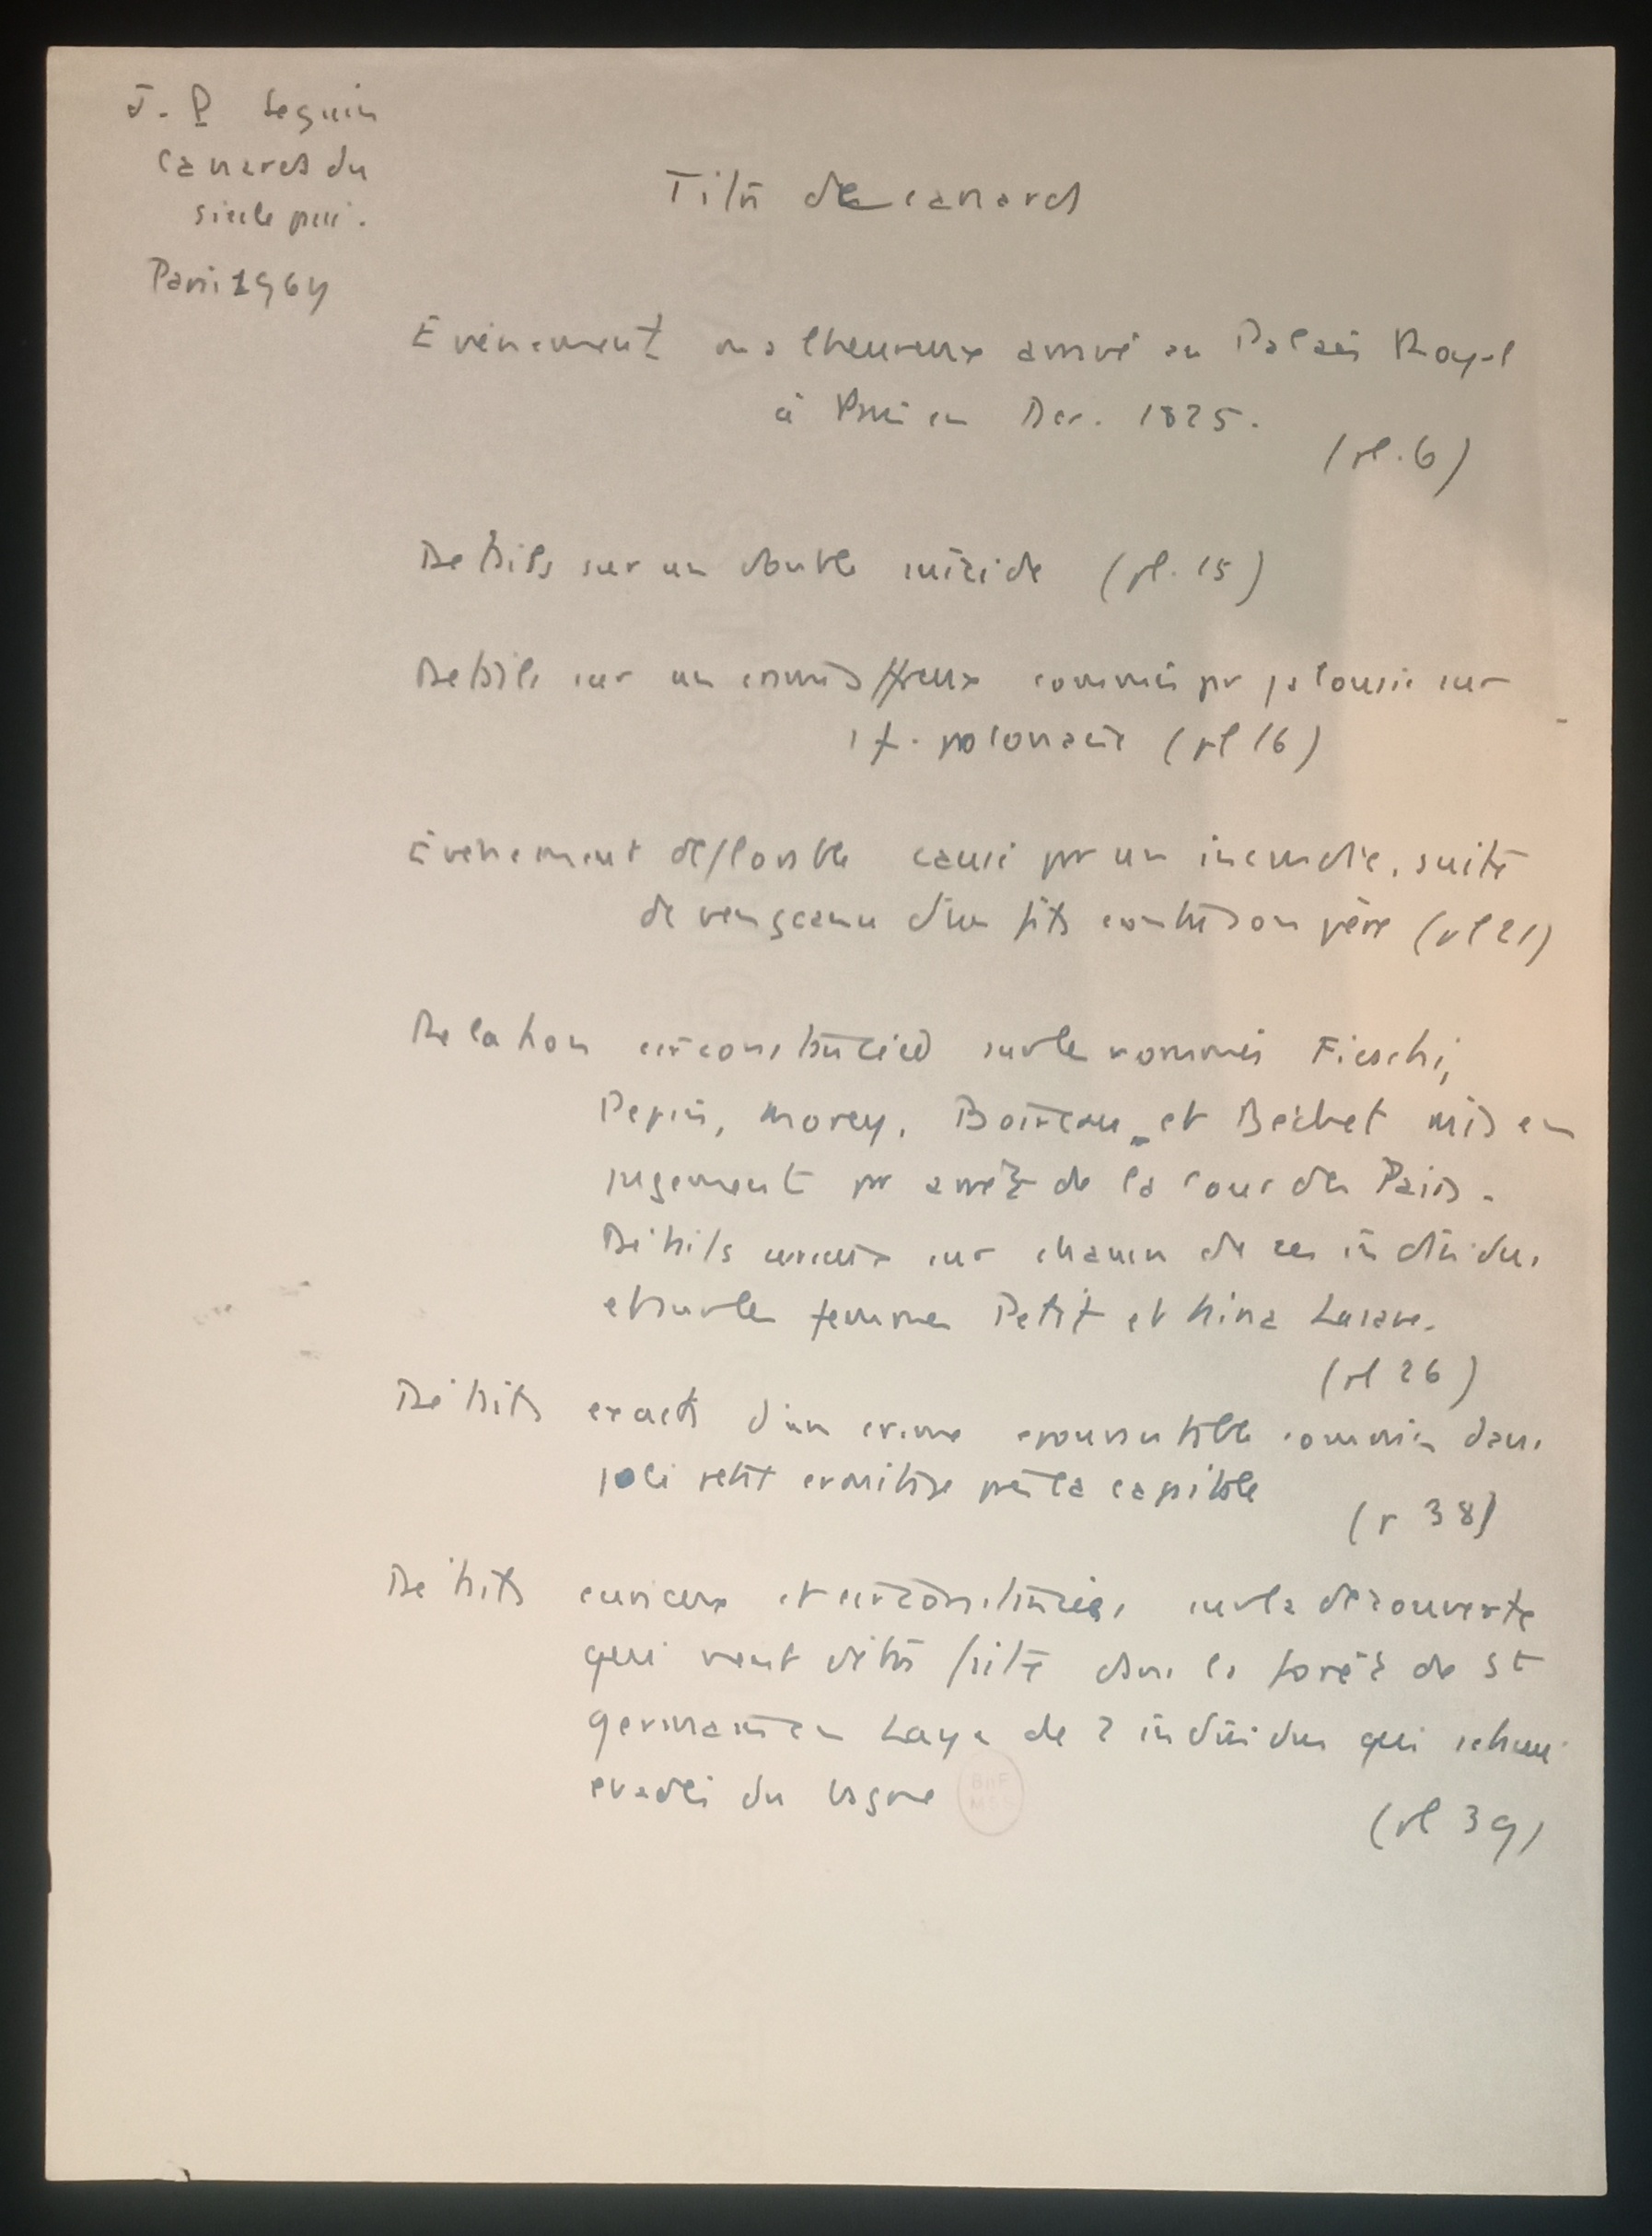 J. P Seguin
Canards du
siècle passé.
Paris 1964
Titres de canards
Evénement malheureux arrivé au Palais Royal
à Paris en Dec. 1825.
(pl. 6)
Details sur un double suicide (pl. 15)
Details sur un crime affreux commis par jalousie sur
1 f. polonaise (pl 16)
Evénement déplorable causé par un incendie, suite
de vengeance d'un fils contre son père (pl 21)
Relation circonstanciée sur les nommés Fieschi,
Pepin, Morey, Boireau et Béchet mis en
jugement par arrêt de la Cour des Pairs.
Détails curieux sur chacun de ces individus
et sur les femmes Petit et Nina Lasave.
(pl 26)
Détails exacts d'un crime épouvantable commis dans
joli petit ermitage près la capitale
(p 38)
Détails curieux et circonstanciés sur la découverte
qui vient d'être faite dans la forêt de St
Germain en Laye de 2 individus qui
evadés du bagne
(pl 39)
BnF
MSS